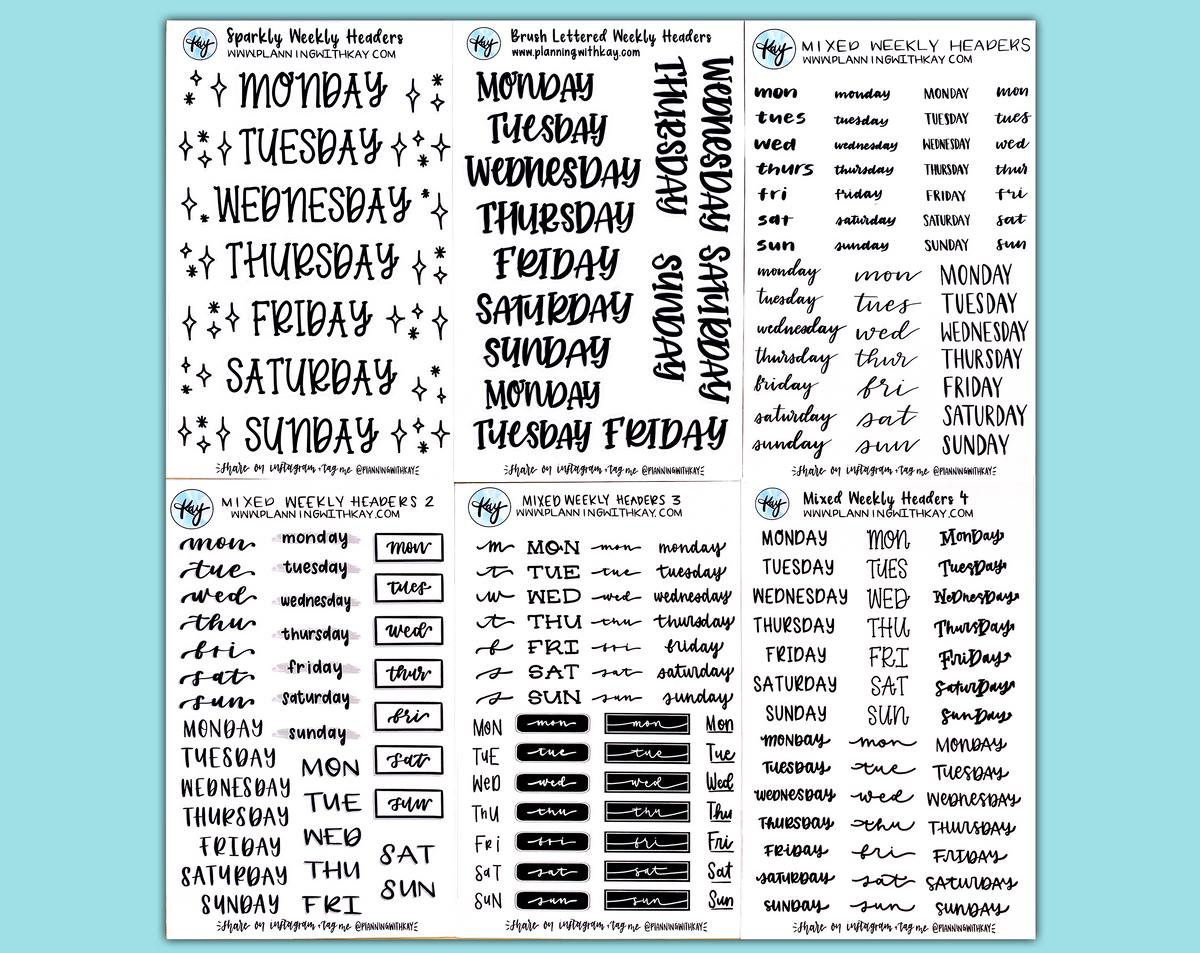 Kay
Sparkly Weekly Headers
WWW.PLANNINGWITHKAY.COM
MONDAY
TUESDAY
WEDNESDAY
THURSDAY
FRIDAY
SATURDAY
SUNDAY
Share on instagram + tag me @PLANNINGWITHKAY
Kay
Brush Lettered Weekly Headers
www.planningwithkay.com
MONDAY
TUESDAY
WEDNESDAY
THURSDAY
FRIDAY
SATURDAY
SUNDAY
MONDAY
TUESDAY FRIDAY
THURSDAY SUNDAY
WEDNESDAY SATURDAY
Share on instagram + tag me @PLANNINGWITHKAY
Kay
MIXED WEEKLY HEADERS
WWW.PLANNINGWITHKAY.COM
mon monday MONDAY mon
tues tuesday TUESDAY tues
wed wednesday WEDNESDAY wed
thurs thursday THURSDAY thur
fri friday FRIDAY fri
sat saturday SATURDAY sat
sun sunday SUNDAY sun
monday mon MONDAY
tuesday tues TUESDAY
wednesday wed WEDNESDAY
thursday thur THURSDAY
friday fri FRIDAY
saturday sat SATURDAY
sunday sun SUNDAY
Share on instagram + tag me @PLANNINGWITHKAY
Kay
MIXED WEEKLY HEADERS 2
WWW.PLANNINGWITHKAY.COM
mon monday mon
tue tuesday tues
wed wednesday wed
thu thursday thur
fri friday fri
sat saturday sat
sun sunday sun
MONDAY
TUESDAY
WEDNESDAY
THURSDAY
FRIDAY
SATURDAY
SUNDAY
MON
TUE
WED
THU
FRI
SAT
SUN
Share on instagram + tag me @PLANNINGWITHKAY
Kay
MIXED WEEKLY HEADERS 3
WWW.PLANNINGWITHKAY.COM
m MON mon monday
t TUE tue tuesday
w WED wed wednesday
t THU thu thursday
f FRI fri friday
s SAT sat saturday
s SUN sun sunday
MON mon mon Mon
TUE tue tue Tue
WED wed wed Wed
THU thu thu Thu
FRI fri fri Fri
SAT sat sat Sat
SUN sun sun Sun
Share on instagram + tag me @PLANNINGWITHKAY
Kay
Mixed Weekly Headers 4
WWW.PLANNINGWITHKAY.COM
MONDAY MON MonDay
TUESDAY TUES TuesDay
WEDNESDAY WED WeDnesDay
THURSDAY THU ThursDay
FRIDAY FRI FriDay
SATURDAY SAT SaturDay
SUNDAY SUN SunDay
MONDAY mon MONDAY
TUESDAY tue TUESDAY
WEDNESDAY wed WEDNESDAY
THURSDAY thu THURSDAY
FRIDAY fri FRIDAY
SATURDAY sat SATURDAY
SUNDAY sun SUNDAY
Share on instagram + tag me @PLANNINGWITHKAY